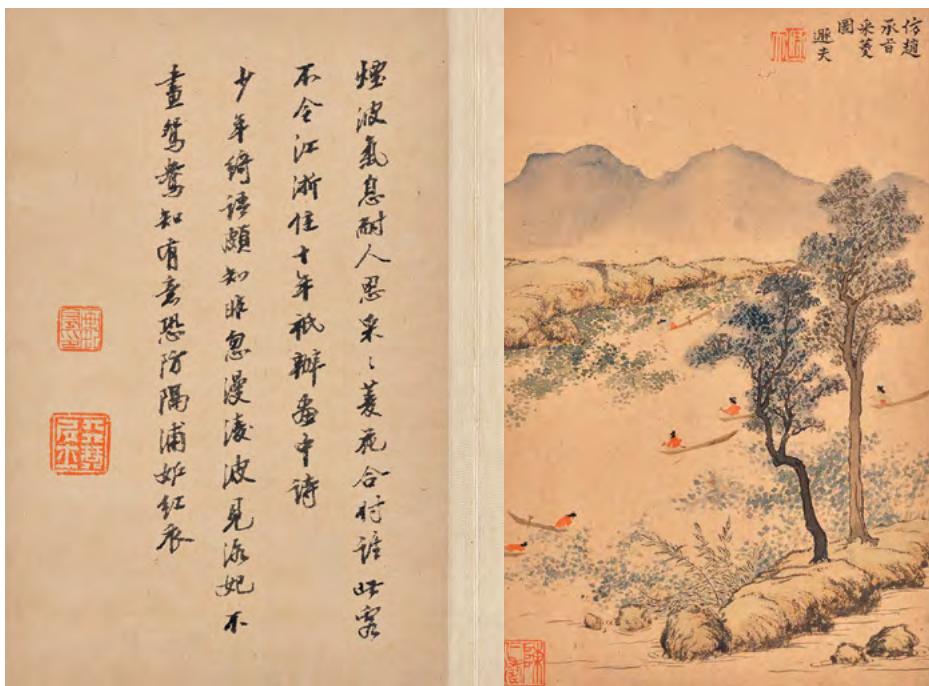 仿趙
承旨
采菱
圖
煙波氣息耐人思采〻菱花合付誰此客
不令江浙住十年祇辦畫中詩
少年綺語頗知非忽漫凌波見洛妃不
畫鴛鴦知有意恐防隔浦妒紅衣